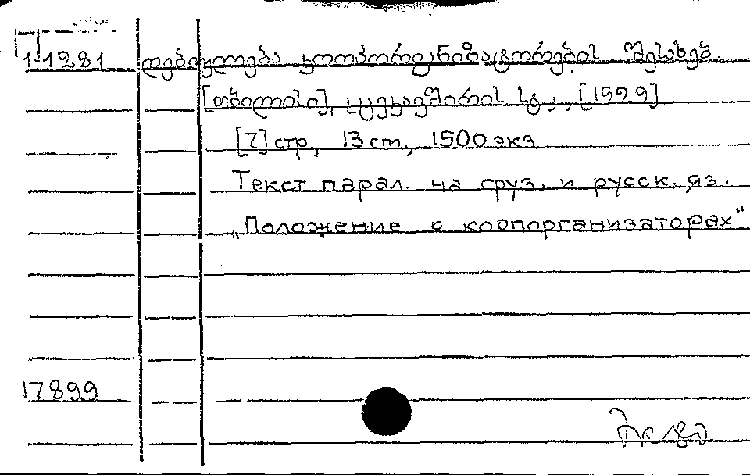 1-1281 დებულება კოოპორგანიზატორების შესახებ.
[თბილისი], ცეკავშირის სტ., [1929]
[7] стр, 13 cm, 1500 экз
Текст парал. на груз. и русск. яз.
„Положение о коопорганизаторах"
17899